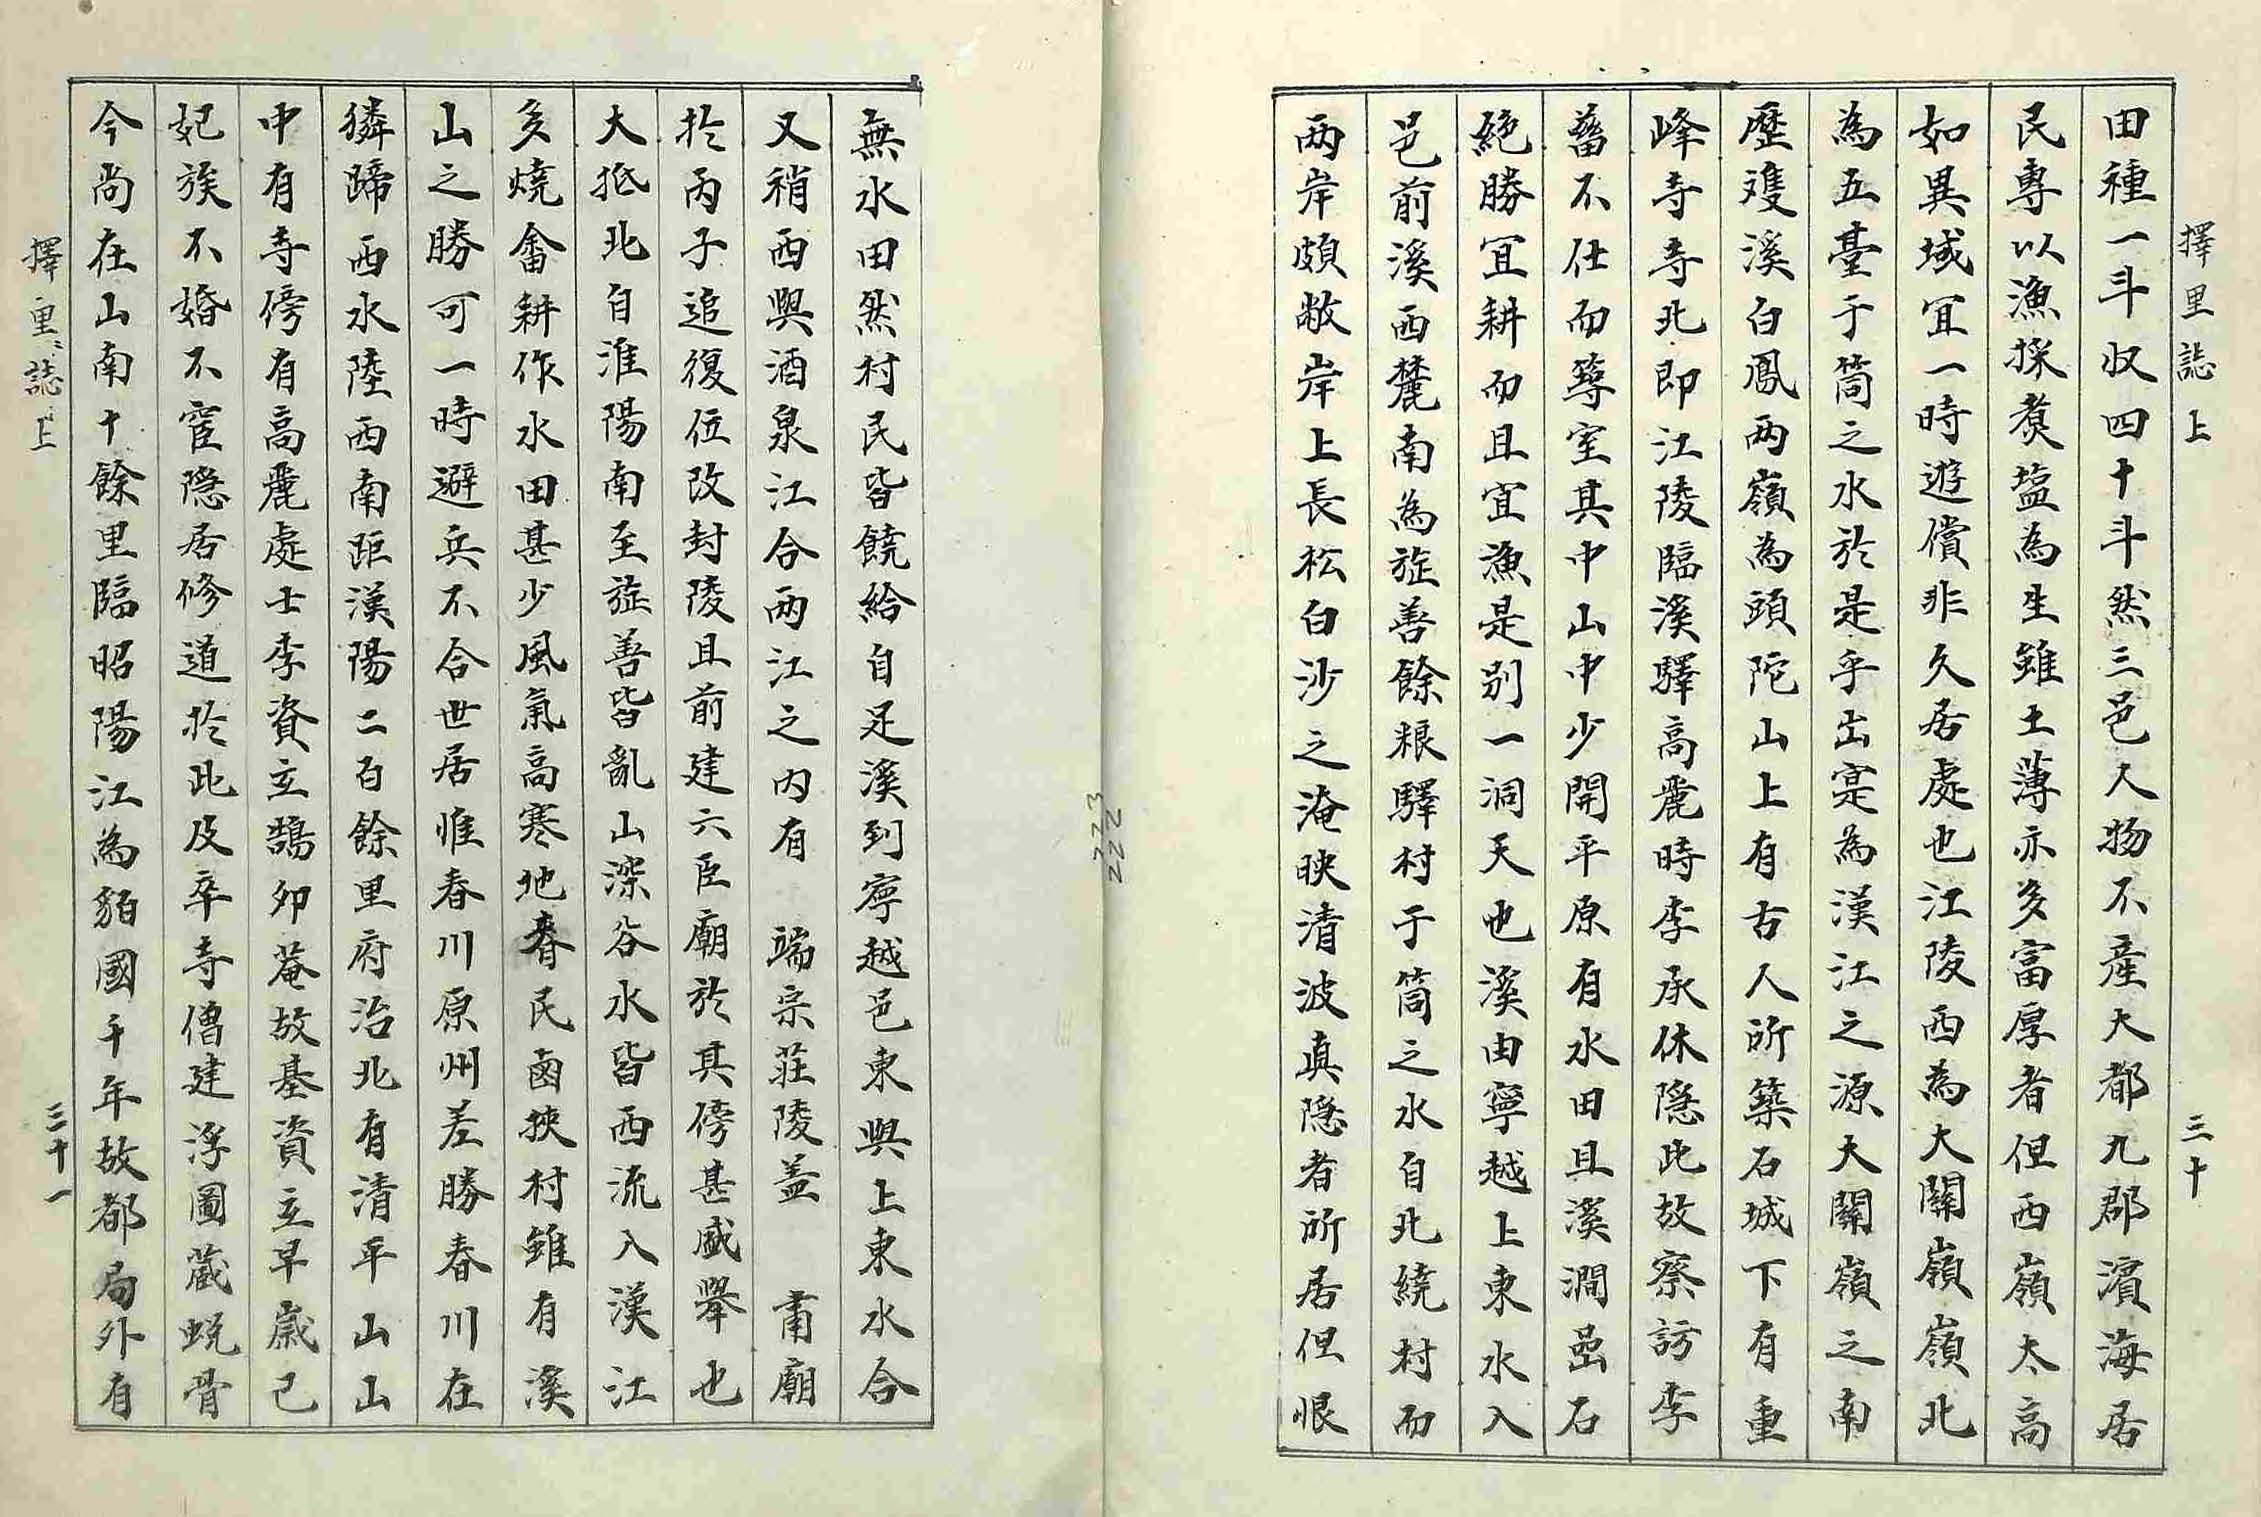 擇里誌 上
三十
田種一斗収四十斗然三邑人物不産大都九郡濱海居
民專以漁採煑塩為生雖土薄亦多富厚者但西嶺太高
如異域宜一時遊償非久居處也江陵西為大關嶺嶺北
為五臺于筒之水於是乎出寔為漢江之源大關嶺之南
歷䨇溪白鳳両嶺為頭陀山上有古人所築石城下有重
峰寺寺北即江陵臨溪驛高麗時李承休隱此故察訪李
蕃不仕而築室其中山中少開平原有水田且溪澗嵒石
絶勝宜耕而且宜漁是別一洞天也溪由寧越上東水入
邑前溪西麓南為旌善餘粮驛村于筒之水自北繞村而
両岸頗敞岸上長松白沙之淹映清波真隱者所居但恨
無水田然村民皆饒給自足溪到寧越邑東與上東水合
又稍西與酒泉江合両江之内有 端宗莊陵盖 肅廟
於丙子追復位改封陵且前建六臣廟於其傍甚盛舉也
大抵北自淮陽南至旌善皆亂山深谷水皆西流入漢江
多燒畬耕作水田甚少風氣高寒地春民鹵挾村雖有溪
山之勝可一時避兵不合世居惟春川原州差勝春川在
獜蹄西水陸西南距漢陽二百餘里府治北有清平山山
中有寺傍有高麗處士李資立鵠卵菴故基資立早歲已
妃族不婚不宦隱居修道於此及卒寺僧建浮圖蔵蛻骨
今尚在山南十餘里臨昭陽江為貊國千年故都局外有
擇里誌 上
三十一
333
222